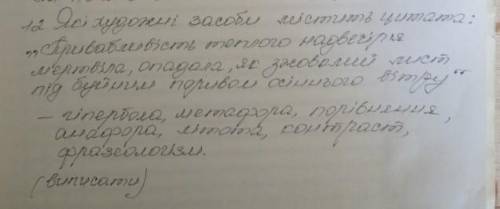 12 Які художні засоби містить цитата:
„Привабливість теплого надвечір'я
мертвіла, опадала, як зжовклий лист
під буйним поривом осіннього вітру"
– гіпербола, метафора, порівняння,
анафора, літота, контраст,
фразеологізм.
(виписати)